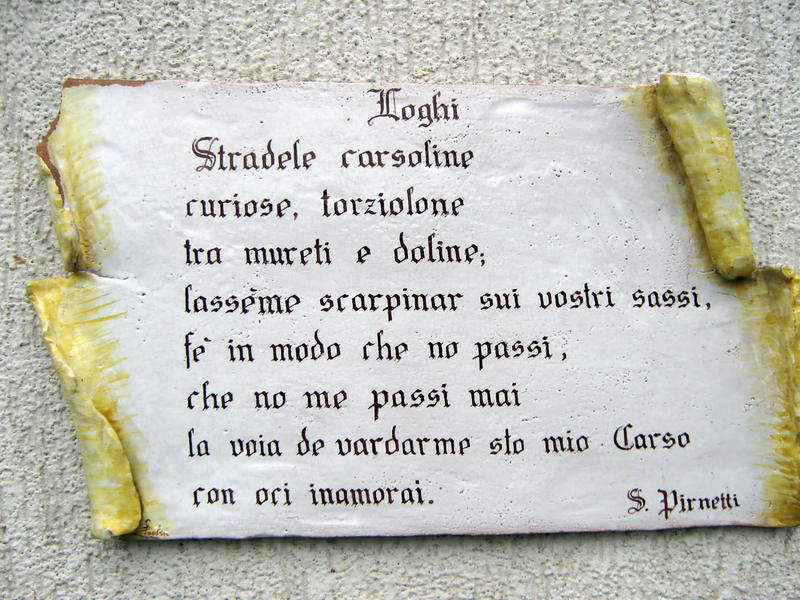 Loghi
Stradele carsoline
curiose, torziolone
tra mureti e doline;
lasséme scarpinar sui vostri sassi,
fè in modo che no passi,
che no me passi mai
la voia de vardarme sto mio Carso
con oci inamorai.
S. Pirnetti